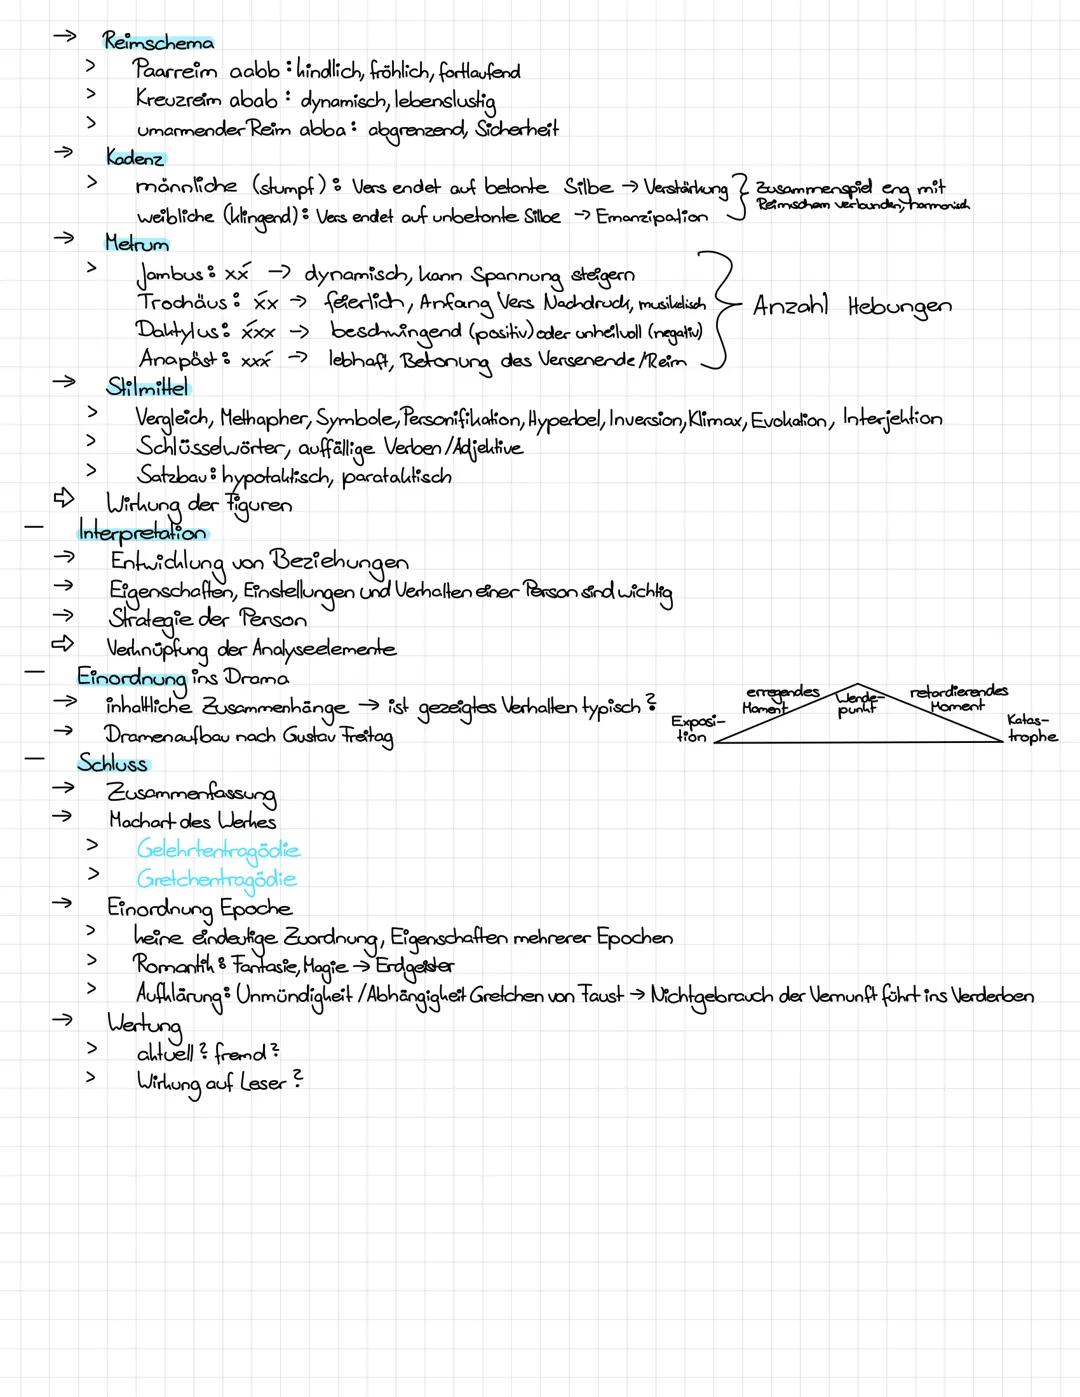 → Reimschema
> Paarreim aabb: kindlich, fröhlich, fortlaufend
> Kreuzreim abab: dynamisch, lebenslustig
> umarmender Reim abba: abgrenzend, Sicherheit
→ Kadenz
> männliche (stumpf): Vers endet auf betonte Silbe → Verstärkung } Zusammenspiel eng mit
weibliche (klingend): Vers endet auf unbetonte Silbe → Emanzipation Reimschem verbunden, harmonisch
→ Metrum
> Jambus: xx́ → dynamisch, kann Spannung steigern
Trochäus: x́x → feierlich, Anfang Vers Nachdruck, musikalisch } Anzahl Hebungen
Daktylus: x́xx → beschwingend (positiv) oder unheilvoll (negativ)
Anapäst: xxx́ → lebhaft, Betonung des Versenende/Reim
→ Stilmittel
> Vergleich, Methapher, Symbole, Personifikation, Hyperbel, Inversion, Klimax, Evokation, Interjektion
> Schlüsselwörter, auffällige Verben/Adjektive
> Satzbau: hypotaktisch, parataktisch
⇨ Wirkung der Figuren
— Interpretation
→ Entwicklung von Beziehungen
→ Eigenschaften, Einstellungen und Verhalten einer Person sind wichtig
→ Strategie der Person
⇨ Verknüpfung der Analyseelemente
— Einordnung ins Drama
→ inhaltliche Zusammenhänge → ist gezeigtes Verhalten typisch?
→ Dramenaufbau nach Gustav Freitag
Exposi-
tion
erregendes
Moment
Wende-
punkt
retardierendes
Moment
Katas-
trophe
— Schluss
→ Zusammenfassung
→ Machart des Werkes
> Gelehrtentragödie
> Gretchentragödie
→ Einordnung Epoche
> keine eindeutige Zuordnung, Eigenschaften mehrerer Epochen
> Romantik: Fantasie, Magie → Erdgeister
> Aufklärung: Unmündigkeit/Abhängigkeit Gretchen von Faust → Nichtgebrauch der Vernunft führt ins Verderben
→ Wertung
> aktuell? fremd?
> Wirkung auf Leser?